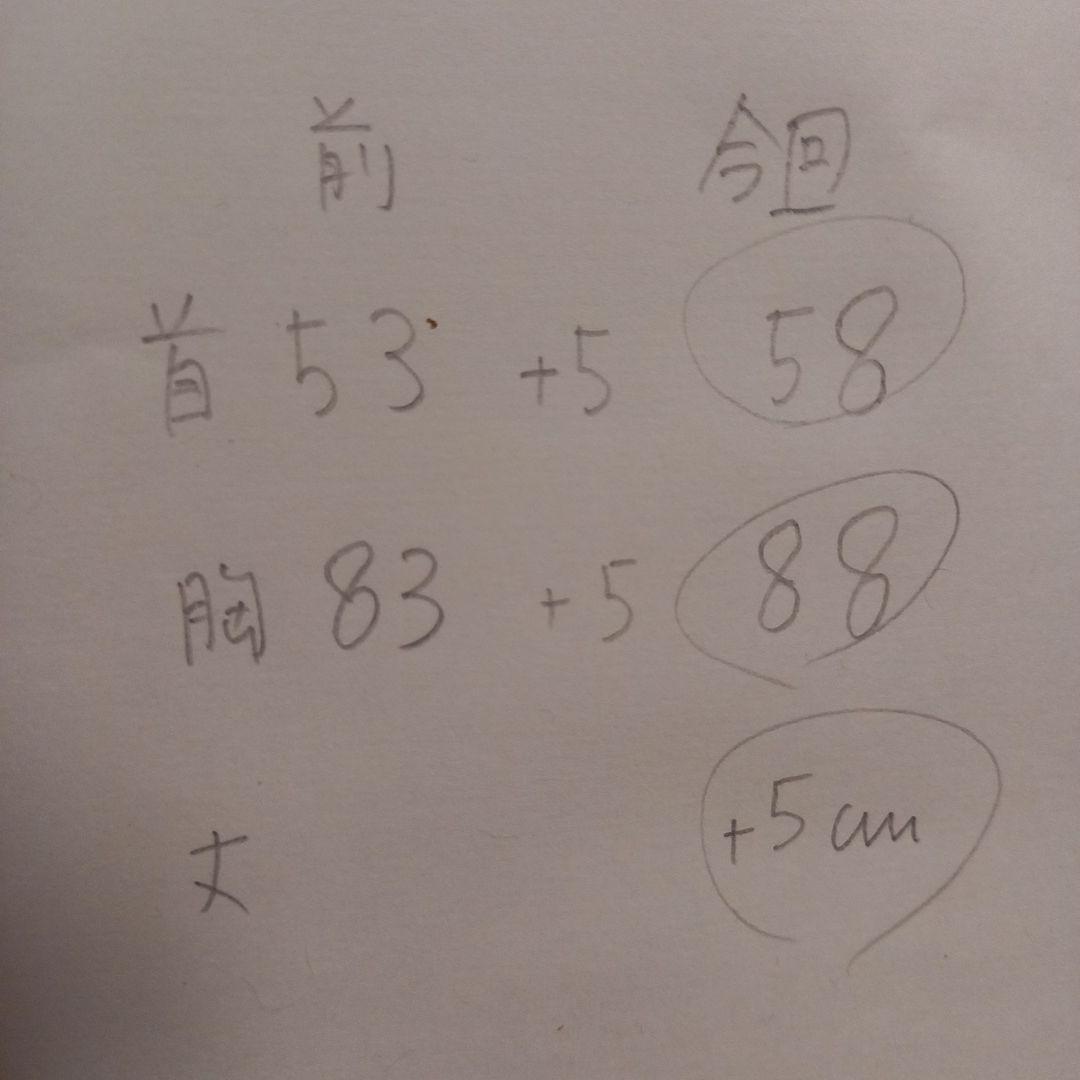 前 今回
首 53 +5 58
胸 83 +5 88
丈 +5cm